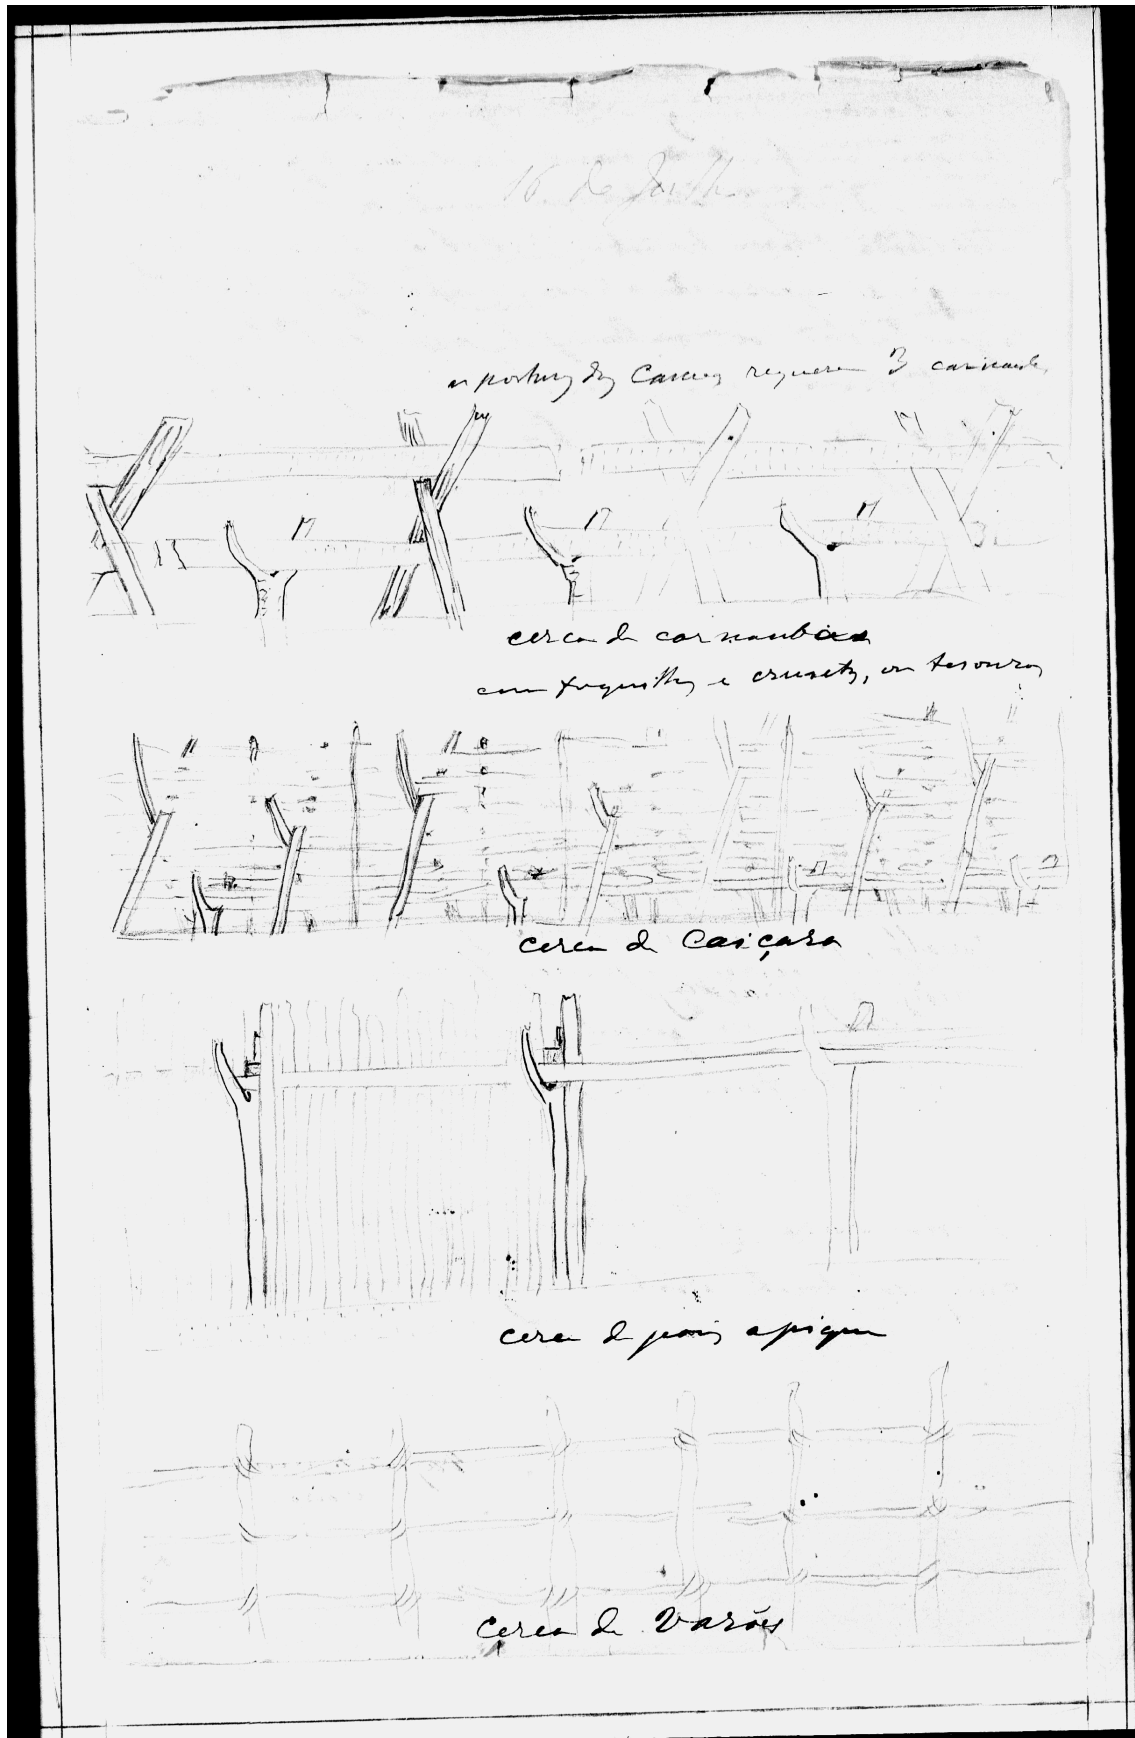 16 de Julho
requerem 3 carnaubas
cerca de carnaubas
com forquilhas e crusetas, ou tesouras
cerca de Caiçara
cerca de paus apique
cerca de Varões